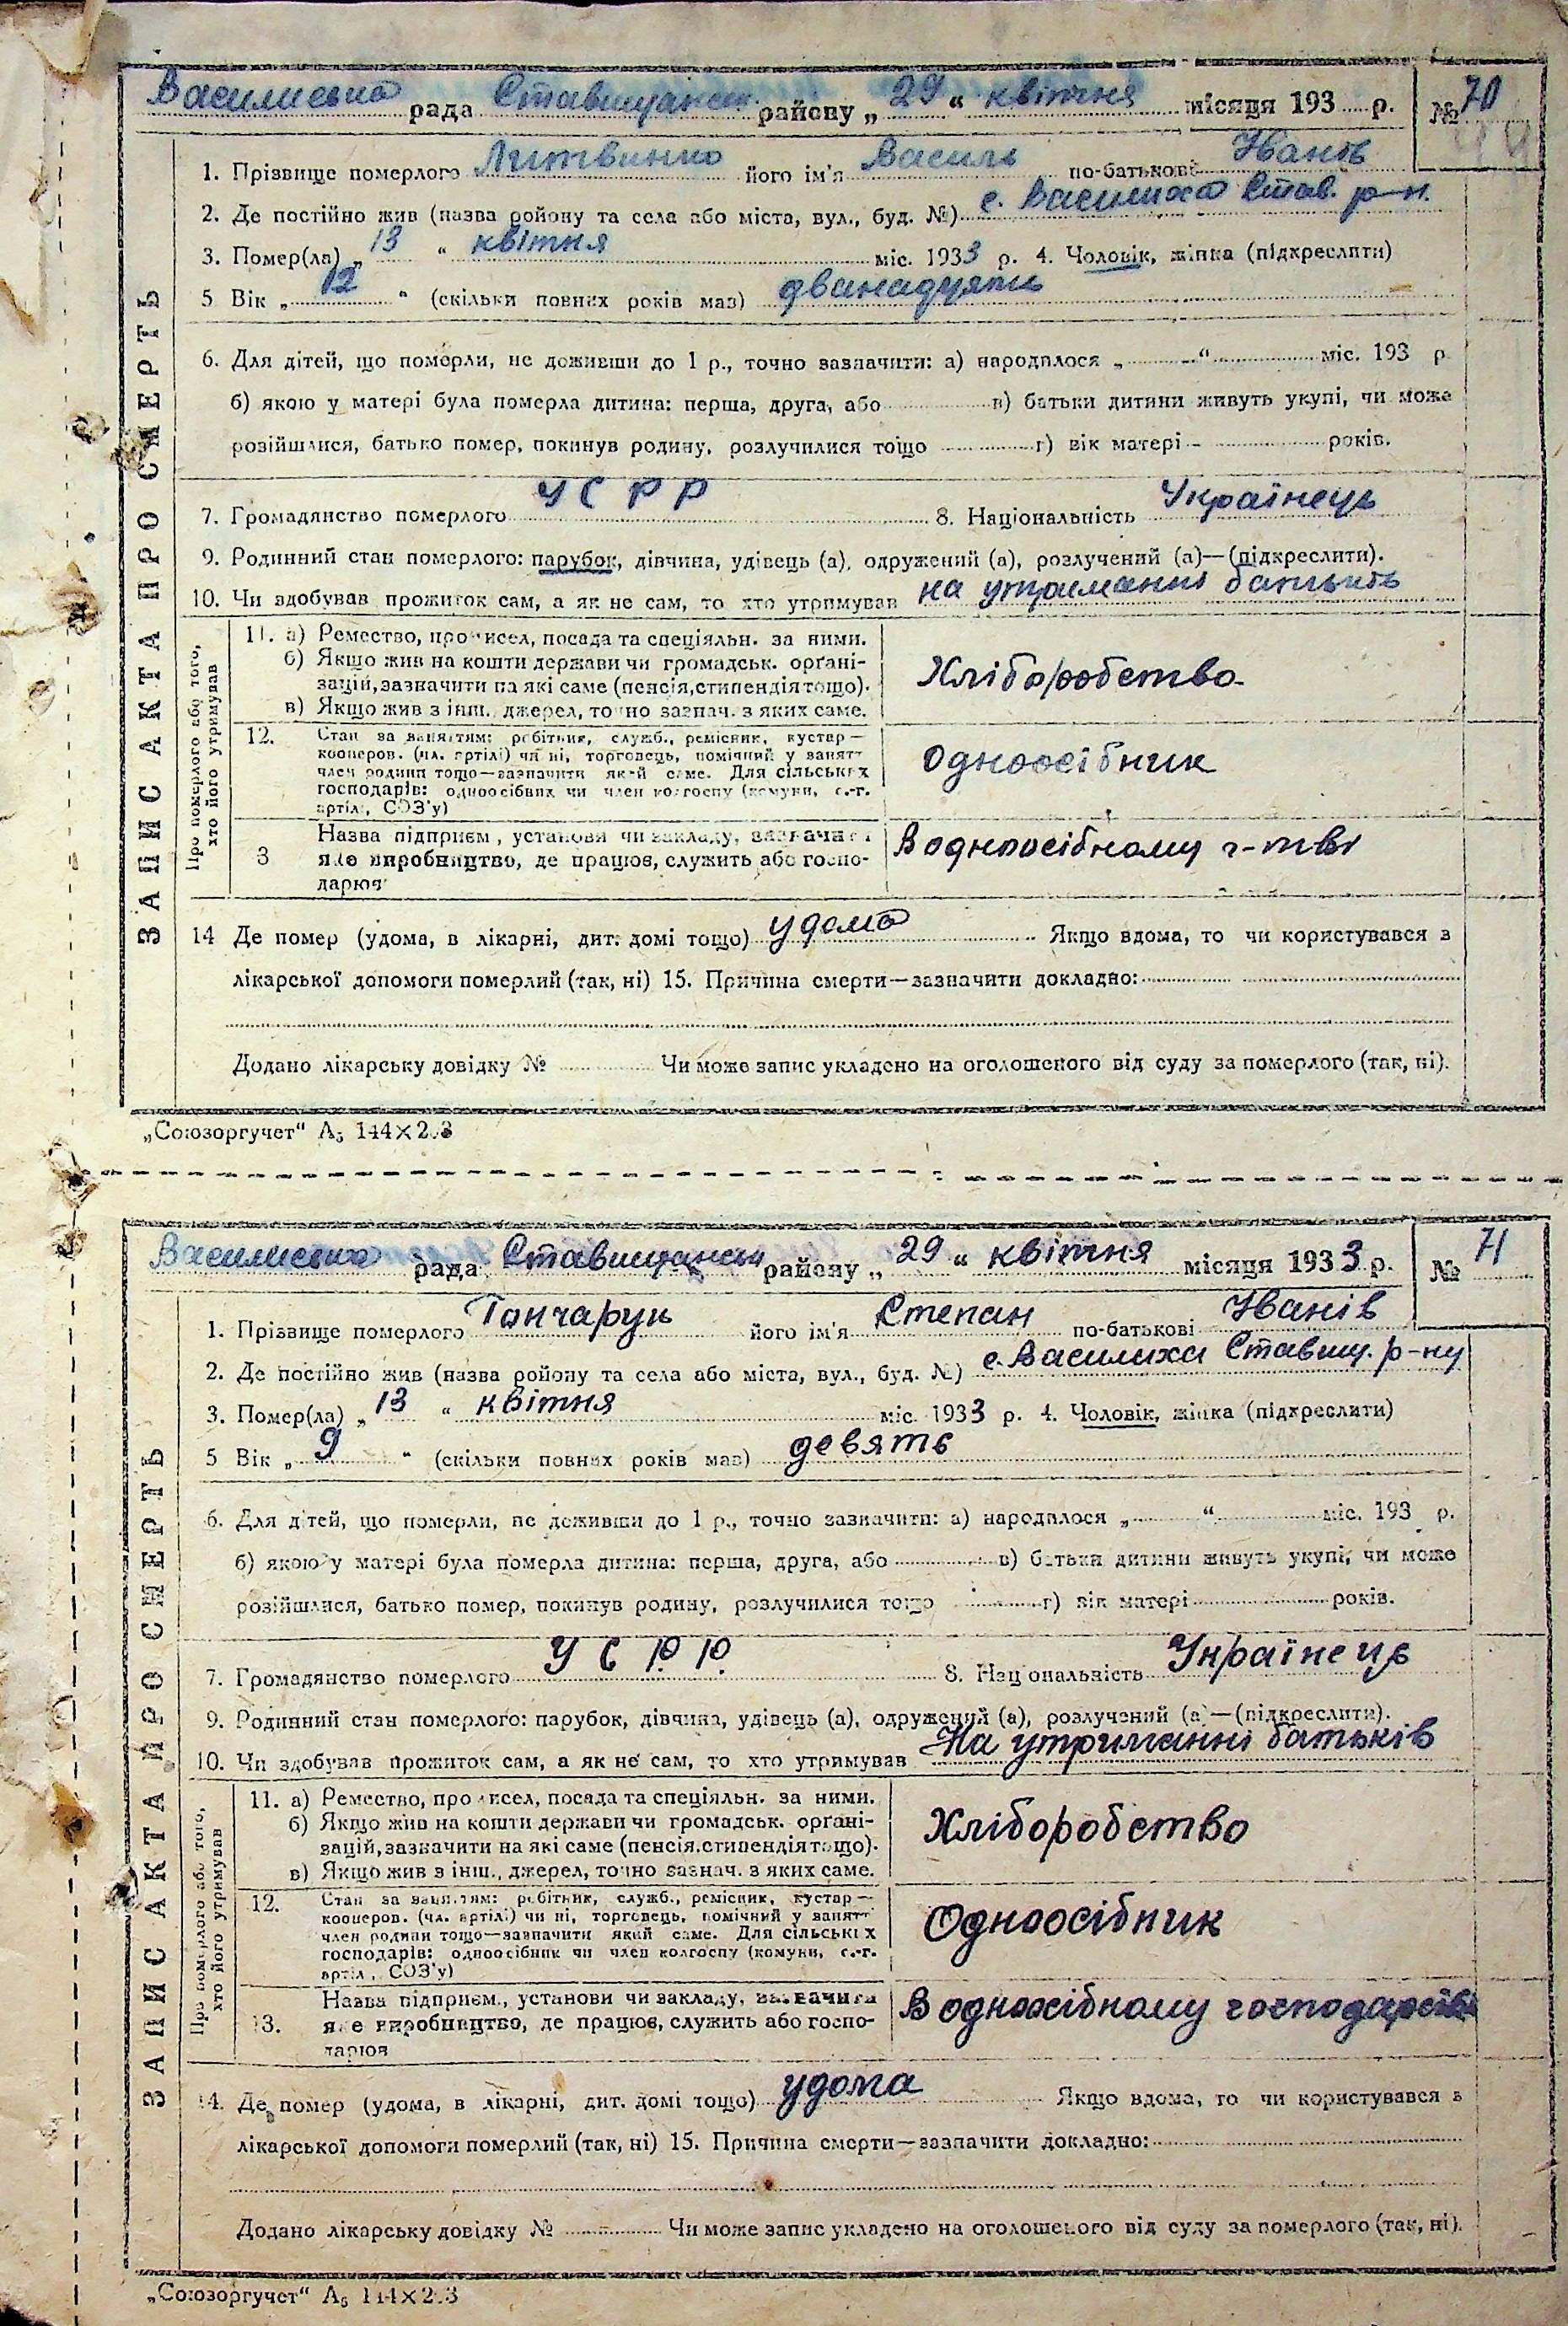 Василиська рада Ставищанськ. району „29“ квітня місяця 193 р. № 70
1. Прізвище померлого Литвинко його ім'я Василь по-батькові Іванів
2. Де постійно жив (назва ройону та села або міста, вул., буд. №) с. Василиха Став. р-н.
3. Помер(ла) „13“ квітня міс. 1933 р. 4. Чоловік, жінка (підкреслити)
5 Вік „12“ (скільки повних років має) дванадцять
6. Для дітей, що померли, не доживши до 1 р., точно зазначити: а) народилося „ “ міс. 193 р
б) якою у матері була померла дитина: перша, друга, або в) батьки дитини живуть укупі, чи може
розійшлися, батько помер, покинув родину, розлучилися тощо г) вік матері - років.
7. Громадянство померлого У С Р Р 8. Національність Українець
9. Родинний стан померлого: парубок, дівчина, удівець (а), одружений (а), розлучений (а)—(підкреслити).
10. Чи здобував прожиток сам, а як не сам, то хто утримував на утриманні батьків
11. а) Ремество, промисел, посада та спеціяльн. за ними.
б) Якщо жив на кошти держави чи громадськ. орґані-
зацій, зазначити на які саме (пенсія, стипендія тощо).
в) Якщо жив з інш. джерел, точно зазнач. з яких саме.
Хліборобство
12. Стан за заняттям: робітник, служб., ремісник, кустар—
кооперов. (чл. артілі) чи ні, торговець, помічний у занятт
член родини тощо—зазначити який саме. Для сільських
господарів: одноосібник чи член колгоспу (комуни, с.-г.
артілі, СОЗ'у)
Одноосібник
3 Назва підприєм, установи чи закладу, зазначити
яке виробництво, де працює, служить або госпо-
дарює
В одноосібному г-тві
14 Де помер (удома, в лікарні, дит. домі тощо) удома Якщо вдома, то чи користувався з
лікарської допомоги померлий (так, ні) 15. Причина смерти—зазначити докладно:
Додано лікарську довідку № Чи може запис укладено на оголошеного від суду за померлого (так, ні).
ЗАПИС АКТА ПРО СМЕРТЬ
Про померлого або того,
хто його утримував
„Союзоргучет“ А5
Василиська рада Ставищанськ району „29“ квітня місяця 1933 р. № 71
1. Прізвище померлого Гончарук його ім'я Степан по-батькові Іванів
2. Де постійно жив (назва ройону та села або міста, вул., буд. №) с. Василиха Ставищ. р-ну
3. Помер(ла) „13“ квітня міс. 1933 р. 4. Чоловік, жінка (підкреслити)
5 Вік „9“ (скільки повних років має) девять
6. Для дітей, що померли, не доживши до 1 р., точно зазначити: а) народилося „ “ міс. 193 р.
б) якою у матері була померла дитина: перша, друга, або в) батьки дитини живуть укупі, чи може
розійшлися, батько помер, покинув родину, розлучилися тощо г) вік матері років.
7. Громадянство померлого У С Р. Р. 8. Національність Українець
9. Родинний стан померлого: парубок, дівчина, удівець (а), одружений (а), розлучений (а)—(підкреслити).
10. Чи здобував прожиток сам, а як не сам, то хто утримував На утриманні батьків
11. а) Ремество, промисел, посада та спеціяльн. за ними.
б) Якщо жив на кошти держави чи громадськ. орґані-
зацій, зазначити на які саме (пенсія, стипендія тощо).
в) Якщо жив з інш., джерел, точно зазнач. з яких саме.
Хліборобство
12. Стан за заняттям: робітник, служб., ремісник, кустар—
кооперов. (чл. артілі) чи ні, торговець, помічний у занятт
член родини тощо—зазначити який саме. Для сільських
господарів: одноосібник чи член колгоспу (комуни, с.-г.
артіл, СОЗ'у)
Одноосібник
13. Назва підприєм., установи чи закладу, зазначити
яке виробництво, де працює, служить або госпо-
дарює
В одноосібному господарстві
14. Де помер (удома, в лікарні, дит. домі тощо) удома Якщо вдома, то чи користувався з
лікарської допомоги померлий (так, ні) 15. Причина смерти—зазначити докладно:
Додано лікарську довідку № Чи може запис укладено на оголошеного від суду за померлого (так, ні).
ЗАПИС АКТА ПРО СМЕРТЬ
Про померлого або того,
хто його утримував
„Союзоргучет“ А5